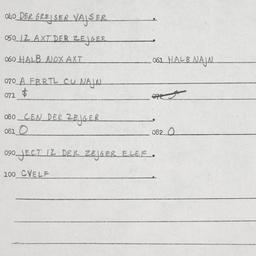 040 DER GREJSER VAJSER
050 IZ AXT DER ZEJGER
060 HALB NOX AXT 061 HALB NAJN
070 A FERTL CU NAJN
071 $
080 CEN DER ZEJGER
081 0 082 0
090 JECT IZ DER ZEJGER ELEF
100 CVELF